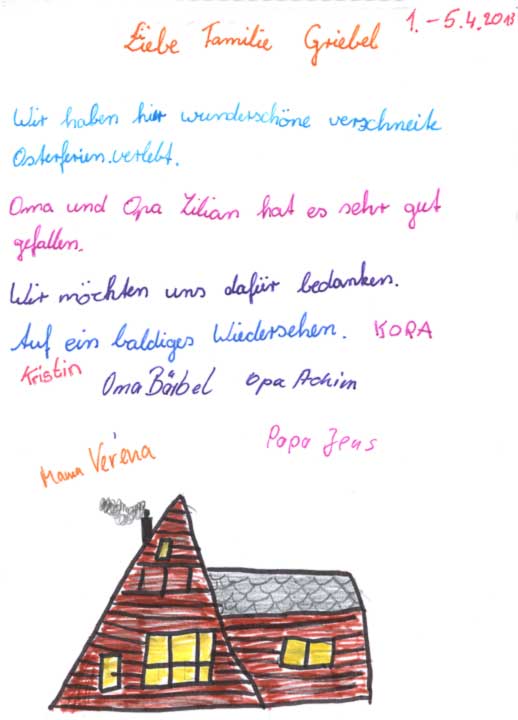 1. – 5.4.2013
Liebe Familie Griebel
Wir haben hier wunderschöne verschneite
Osterferien verlebt.
Oma und Opa Lilian hat es sehr gut
gefallen.
Wir möchten uns dafür bedanken.
Auf ein baldiges Wiedersehen. KORA
Kristin Oma Bärbel Opa Achim
Mama Verena Papa Jens